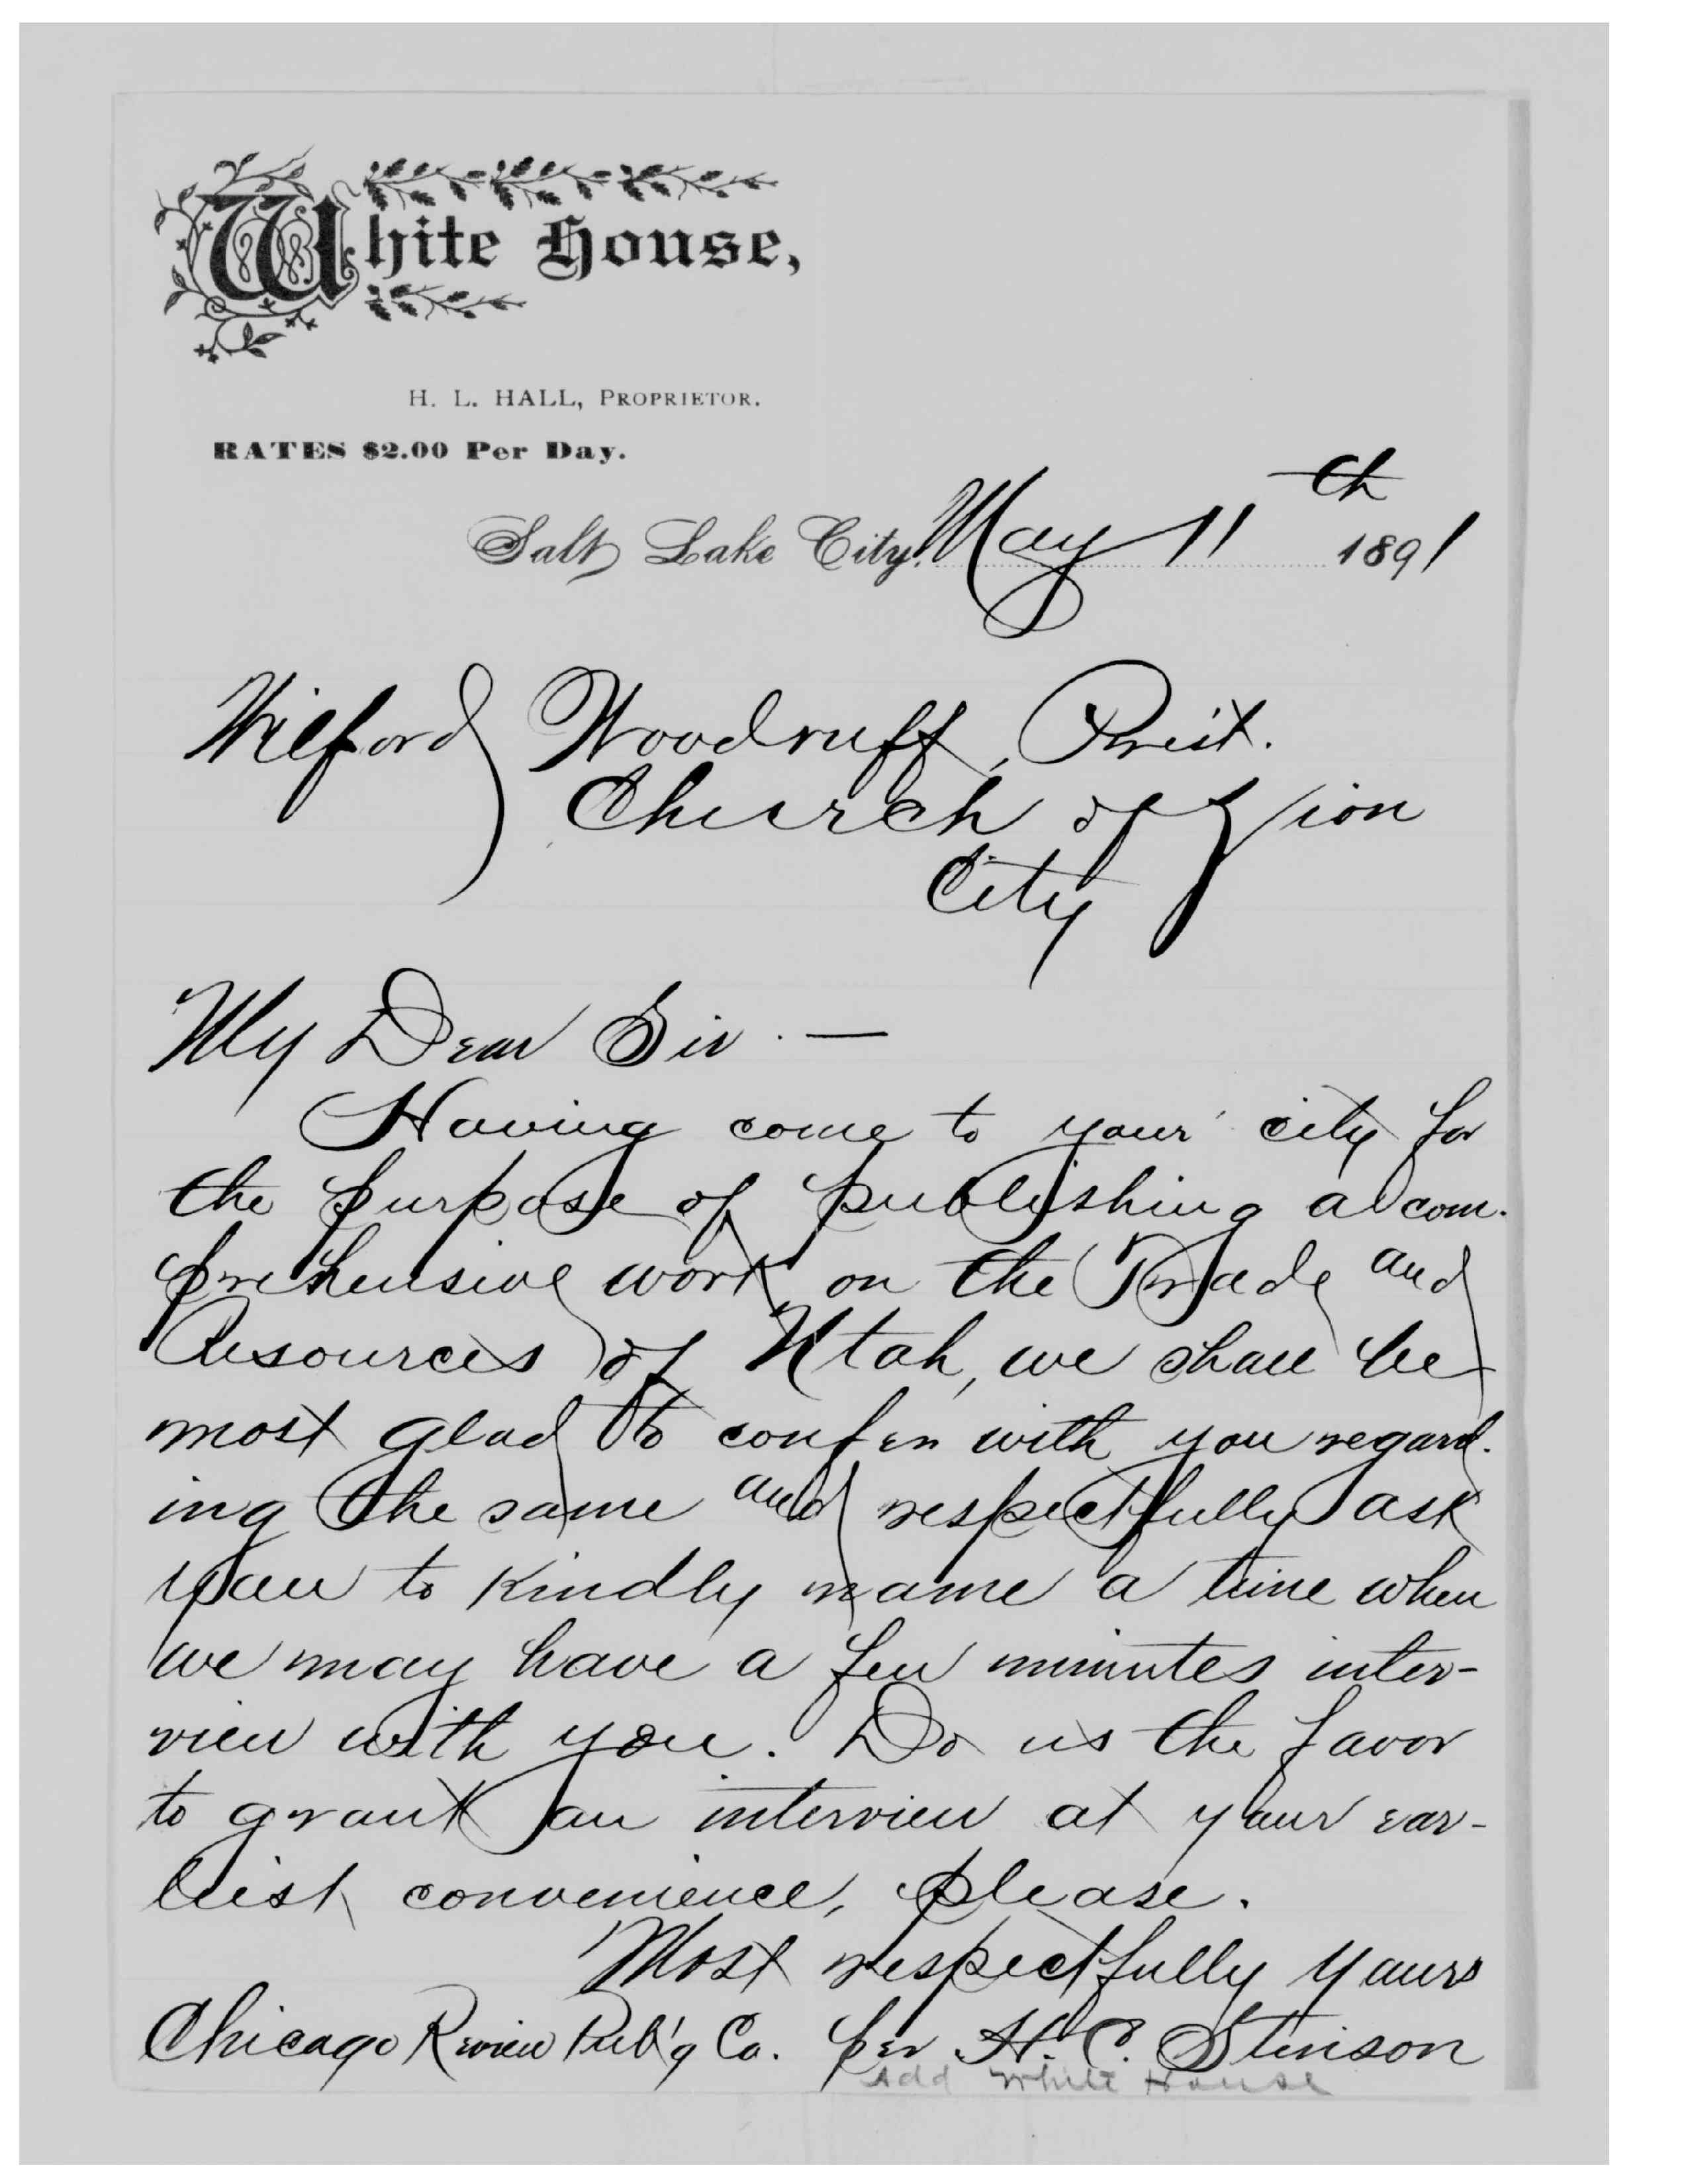 White House,
H. L. HALL, PROPRIETOR.
RATES $2.00 Per Day.
Salt Lake City, May 11th 1891
Wilford Woodruff, Prest.
Church of Zion
City
My Dear Sir. —
Having come to your city for
the purpose of publishing a com-
prehensive work on the Trade and
Resources of Utah, we shall be
most glad to confer with you regard-
ing the same and respectfully ask
you to kindly name a time when
we may have a few minutes inter-
view with you. Do us the favor
to grant an interview at your ear-
liest convenience, please.
Most respectfully yours
Chicago Review Pub'g Co. per H. C. Stinson
Add White House